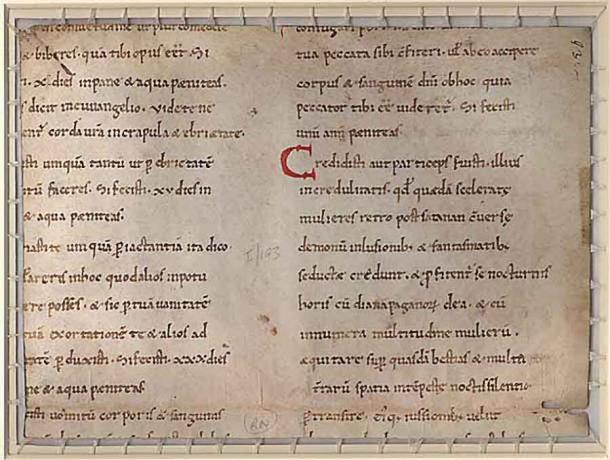 & biberes. qua tibi opus e̅et̅. Si
i. x. dies in pane & aqua pæniteas.
s dicit in euuangelio. Videte ne
ent̅ corda ur̅a in crapula & ebriætate.
isti umqua̅ tantu̅ ut p̲ ebrietate̅
itu̅ faceres. Si fecisti. xv dies in
& aqua pæniteas.
iasti te umqua̅ p̲ iactantia̅ ita dico
fareris in hoc quod alios in potu
ere posses. & sic p̲ tua̅ uanitate̅
tua̅ exortatione̅ te & alios ad
tate̅ p̲duxisti. Si fecisti. xxx dies
ne & aqua pæniteas
isti uomitu̅ corporis & sanguinis
tua peccata sibi c̅fiteri. ul̅ ab eo accipere
corpus & sanguine̅ dn̅i ob hoc quia
peccator tibi e̅e̅ uideret̅. Si fecisti
unu̅ annu̅ pæniteas.
Credidisti aut particeps fuisti. illius
incredulitatis. qd̅ quæda̅ sceleratę
mulieres retro post satanan c̅uersę
demonu̅ inlusionib; & fantasmatib;
seductæ credunt. & p̲fitent̅ se nocturnis
horis cu̅ diana paganorꝝ dea. & cu̅
innumera multitudine mulieru̅.
æquitare sup̲ quasda̅ bestias & multa
t̅raru̅ spatia inte̅pestę noctis silentio
p̲transire. eiq; iussionib; uelut
I/193
RN